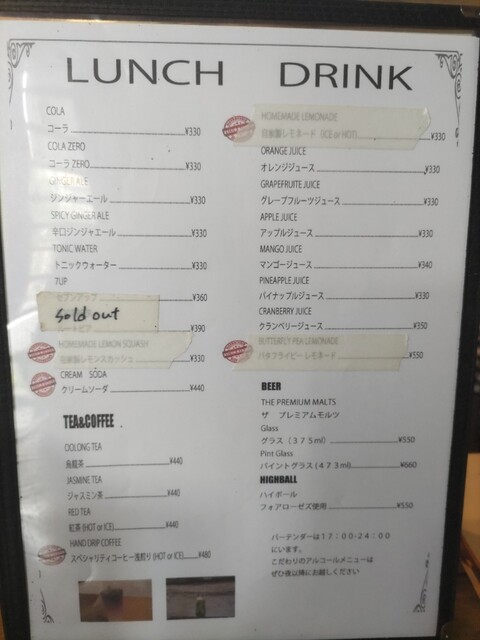 LUNCH DRINK
COLA
コーラ ¥330
COLA ZERO
コーラ ZERO ¥330
GINGER ALE
ジンジャーエール ¥330
SPICY GINGER ALE
辛口ジンジャエール ¥330
TONIC WATER
トニックウォーター ¥330
7UP
セブンアップ ¥360
sold out
ルートビア ¥390
HOMEMADE LEMON SQUASH
自家製レモンスカッシュ ¥330
CREAM SODA
クリームソーダ ¥440
TEA&COFFEE
OOLONG TEA
烏龍茶 ¥440
JASMINE TEA
ジャスミン茶 ¥440
RED TEA
紅茶 (HOT or ICE) ¥440
HAND DRIP COFFEE
スペシャリティコーヒー浅煎り (HOT or ICE) ¥480
HOMEMADE LEMONADE
自家製レモネード (ICE or HOT) ¥330
ORANGE JUICE
オレンジジュース ¥330
GRAPEFRUITE JUICE
グレープフルーツジュース ¥330
APPLE JUICE
アップルジュース ¥330
MANGO JUICE
マンゴージュース ¥340
PINEAPPLE JUICE
パイナップルジュース ¥330
CRANBERRY JUICE
クランベリージュース ¥350
BUTTERFLY PEA LEMONADE
バタフライピー レモネード ¥550
BEER
THE PREMIUM MALTS
ザ プレミアムモルツ
Glass
グラス（３７５ml） ¥550
Pint Glass
パイントグラス (４７３ml) ¥660
HIGHBALL
ハイボール
フォアローゼズ使用 ¥550
バーテンダーは１７：００-２４：００
にいます。
こだわりのアルコールメニューは
ぜひ夜以降にお越しください